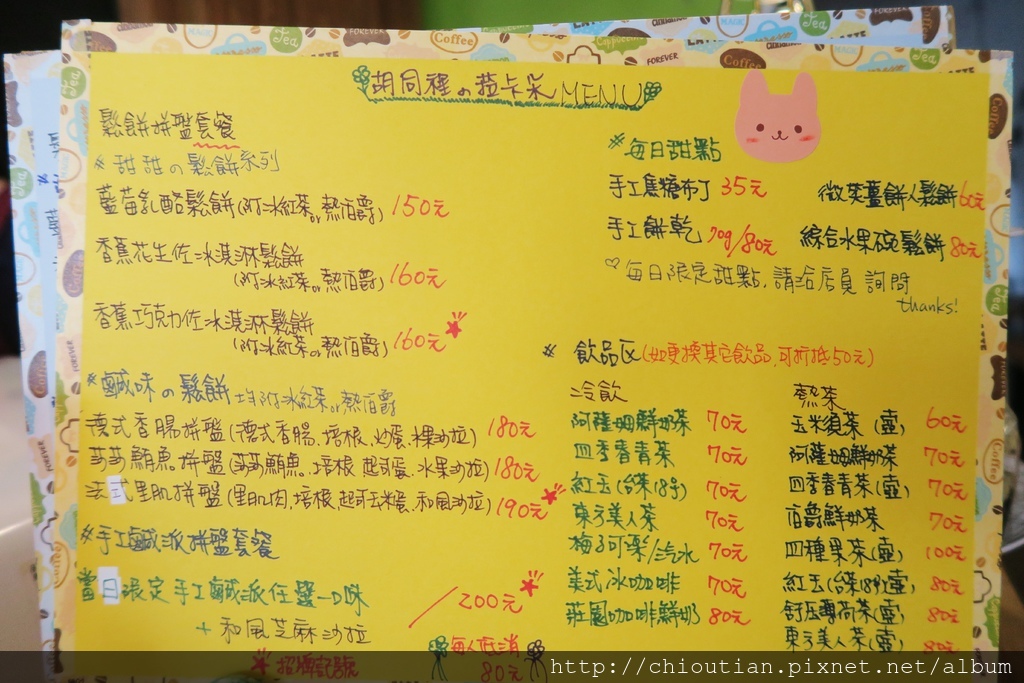 胡同裡の拉卡朵 MENU
鬆餅拼盤套餐
# 甜甜の鬆餅系列
藍莓乳酪鬆餅(附冰紅茶or熱伯爵) 150元
香蕉花生佐冰淇淋鬆餅
(附冰紅茶or熱伯爵) 160元
香蕉巧克力佐冰淇淋鬆餅
(附冰紅茶or熱伯爵) 160元
# 鹹味の鬆餅 均附冰紅茶or熱伯爵
德式香腸拼盤(德式香腸、培根、炒蛋、水果沙拉) 180元
莎莎鮪魚拼盤(莎莎鮪魚、培根、起司蛋、水果沙拉) 180元
法式里肌拼盤(里肌肉、培根、起司玉米蛋、和風沙拉) 190元
# 手工鹹派拼盤套餐
當日限定手工鹹派任選一口味
+ 和風芝麻沙拉
/200元
招牌記號
每人低消
80元
# 每日甜點
手工焦糖布丁 35元
微笑薑餅人鬆餅 60元
手工餅乾 70g/80元
綜合水果碗鬆餅 80元
♡每日限定甜點,請洽店員詢問
thanks!
# 飲品區(如更換其它飲品,可折抵50元)
冷飲
阿薩姆鮮奶茶 70元
四季春青茶 70元
紅玉(台茶18号) 70元
東方美人茶 70元
梅子可樂/汽水 70元
美式冰咖啡 70元
莊園咖啡鮮奶 80元
熱茶
玉米鬚茶(壺) 60元
阿薩姆鮮奶茶 70元
四季春青茶(壺) 70元
伯爵鮮奶茶 70元
四種果茶(壺) 100元
紅玉(台茶18号)(壺) 80元
舒压薄荷茶(壺) 80元
東方美人茶(壺) 80元
http://chioutian.pixnet.net/album